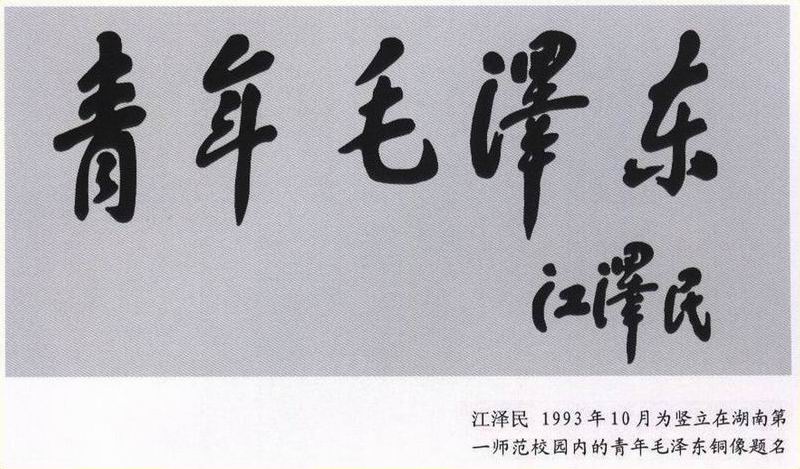 青年毛澤东
江澤民
江泽民 1993年10月为竖立在湖南第
一师范校园内的青年毛泽东铜像题名